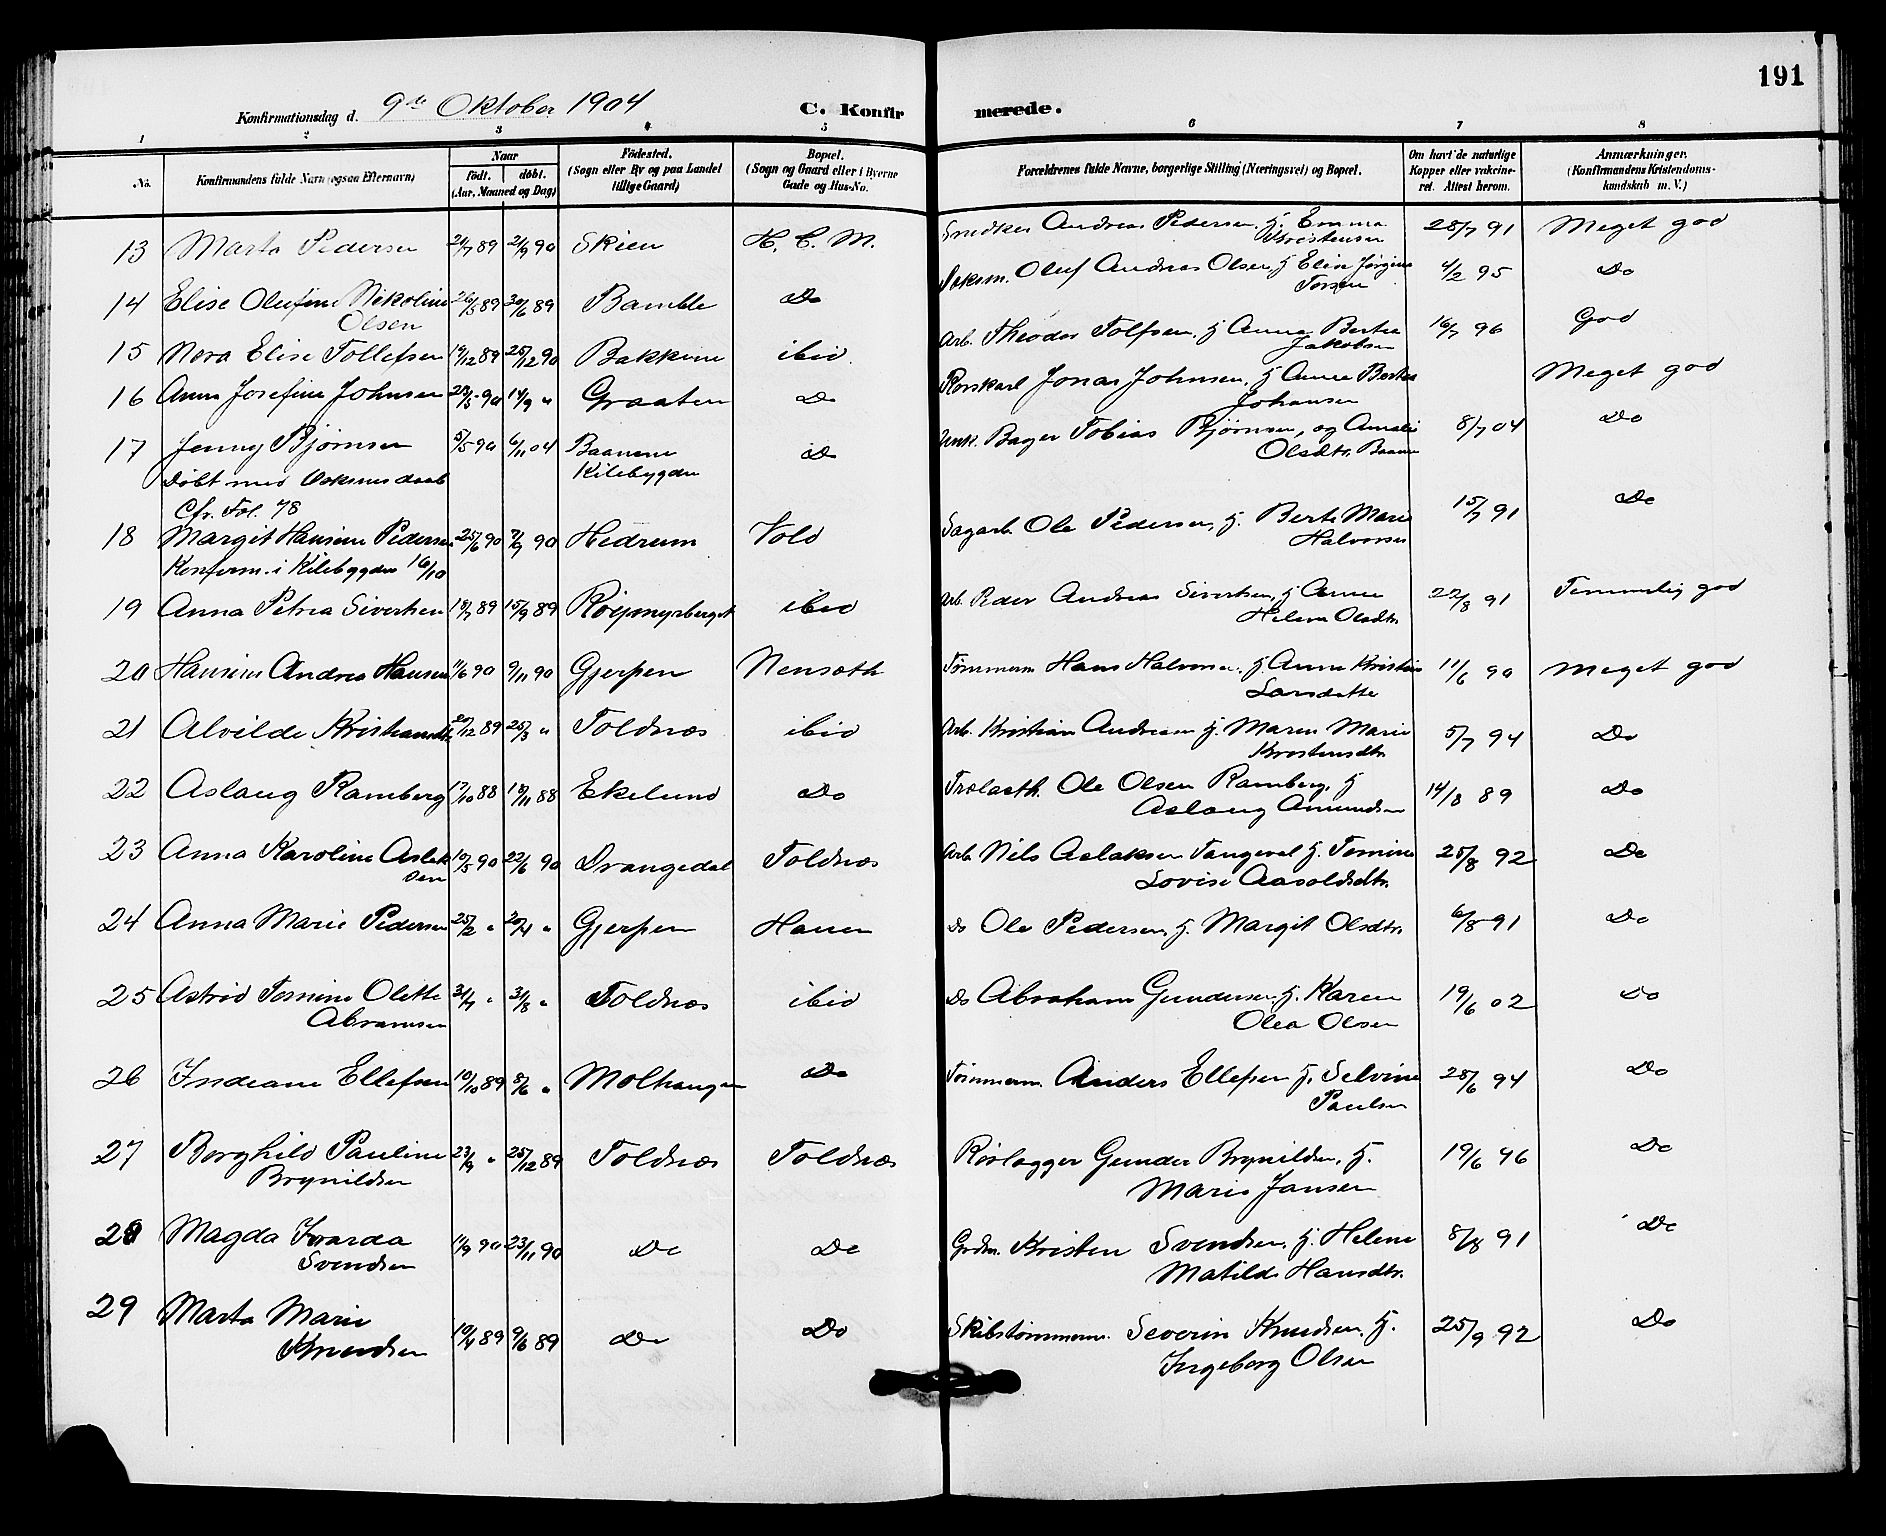 191
Konfirmationsdag d. 9de Oktober 1904 C. Konfirmerede.
1 2 3 4 5 6 7 8
No. Konfirmandens fulde Navn (ogsaa Efternavn) Naar født. døbt. (Aar, Maaned og Dag) Fødested. (Sogn eller By og paa Landet tillige Gaard) Bopæl. (Sogn og Gaard eller i Byerne Gade og Hus-No. Forældrenes fulde Navne, borgerlige Stilling (Næringsvei) og Bopæl. Om havt de naturlige Kopper eller vaccineret. Attest herom. Anmærkninger. (Konfirmandens Kristendomskundskab m. V.)
13 Marta Pedersen 21/7 89 21/9 90 Skien H. C. M. Andreas Pedersen, H. Emma Kristensen 28/7 91 Meget god
14 Elise Olufine Nikoline Olsen 26/5 89 30/6 89 Bamble Do Oluf Andreas Olsen, H. Elin Jørgine 4/2 95 Do
15 Nora Elise Tollefsen 19/12 89 25/12 90 Bakkene ibid. Arb. Theodor Tolfsen, H. Anne Bertea Jakobsen 16/7 96 God
16 Anna Josefine Johnsen 20/5 90 14/9 " Graaten Do Rorskarl Jonas Johnsen, H. Anne Bertea Johansen Meget god
17 Jenny Bjørnsen 5/5 90 6/11 04 Baanene Kilebygden Do Bager Tobias Bjørnsen, og Amalie Olsdtr. Baanene 8/7 04 Do
Døbt med Voksnes daab
Cfr. Fol. 78
18 Margit Hansine Pedersen 25/6 90 7/9 90 Hedrum Vold Sagarb. Ole Pedersen, H. Berte Marie Halvorsen 15/7 91 Do
Konferm. i Kilebygden 16/10
19 Anna Petrea Sivertsen 18/7 89 15/9 89 Røipmyrberget ibid Arb. Peder Andreas Sivertsen, H. Anne Helene Olsdtr. 22/8 91 Temmelig god
20 Hansine Andrea Hansen 1/6 90 9/11 90 Gjerpen Nensæth Tømmerm. Hans Halvorsen, H. Anne Kristine Larsdatter 11/6 90 Meget god
21 Alvilde Kristiansdtr. 27/12 89 25/3 " Toldnæs ibid Arb. Kristian Andreasen H. Maren Marie Kristensdtr. 5/7 94 Do
22 Aslaug Ramberg 17/10 88 18/11 88 Ekelund Do Trælasth. Ole Olsen Ramberg, H. Aslaug Amundsen 14/8 89 Do
23 Anna Karoline Aslaksen 10/5 90 22/6 90 Drangedal Toldnæs Arb. Nils Aslaksen Tangeval H. Tomine Lovise Aasoldsdtr. 25/8 92 Do
24 Anna Marie Pedersen 25/2 " 20/4 " Gjerpen Hauen Do Ole Pedersen, H. Margit Olsdtr. 6/8 91 Do
25 Astrid Tomine Olette Abramsen 31/7 " 31/8 " Toldnæs ibid Do Abraham Gundersen, H. Karen Olea Olsen 19/6 02 Do
26 Indiane Ellefsen 10/10 89 8/6 " Molhaugen Do Tømmerm. Anders Ellefsen H. Selvine Paulsen 28/6 94 Do
27 Borghild Pauline Brynildsen 23/9 " 25/12 89 Toldnæs Toldnæs Rørlægger Gunder Brynildsen, H. Marie Jansen 19/6 96 Do
28 Magda Ivarda Svendsen 11/9 90 23/11 90 Do Do Grdm. Kristen Svendsen, H. Helene Matilde Hansdtr. 8/8 91 Do
29 Marta Marie Knudsen 10/4 89 9/6 89 Do Do Skibstømmerm. Severin Knudsen, H. Ingeborg Olsen 25/9 92 Do